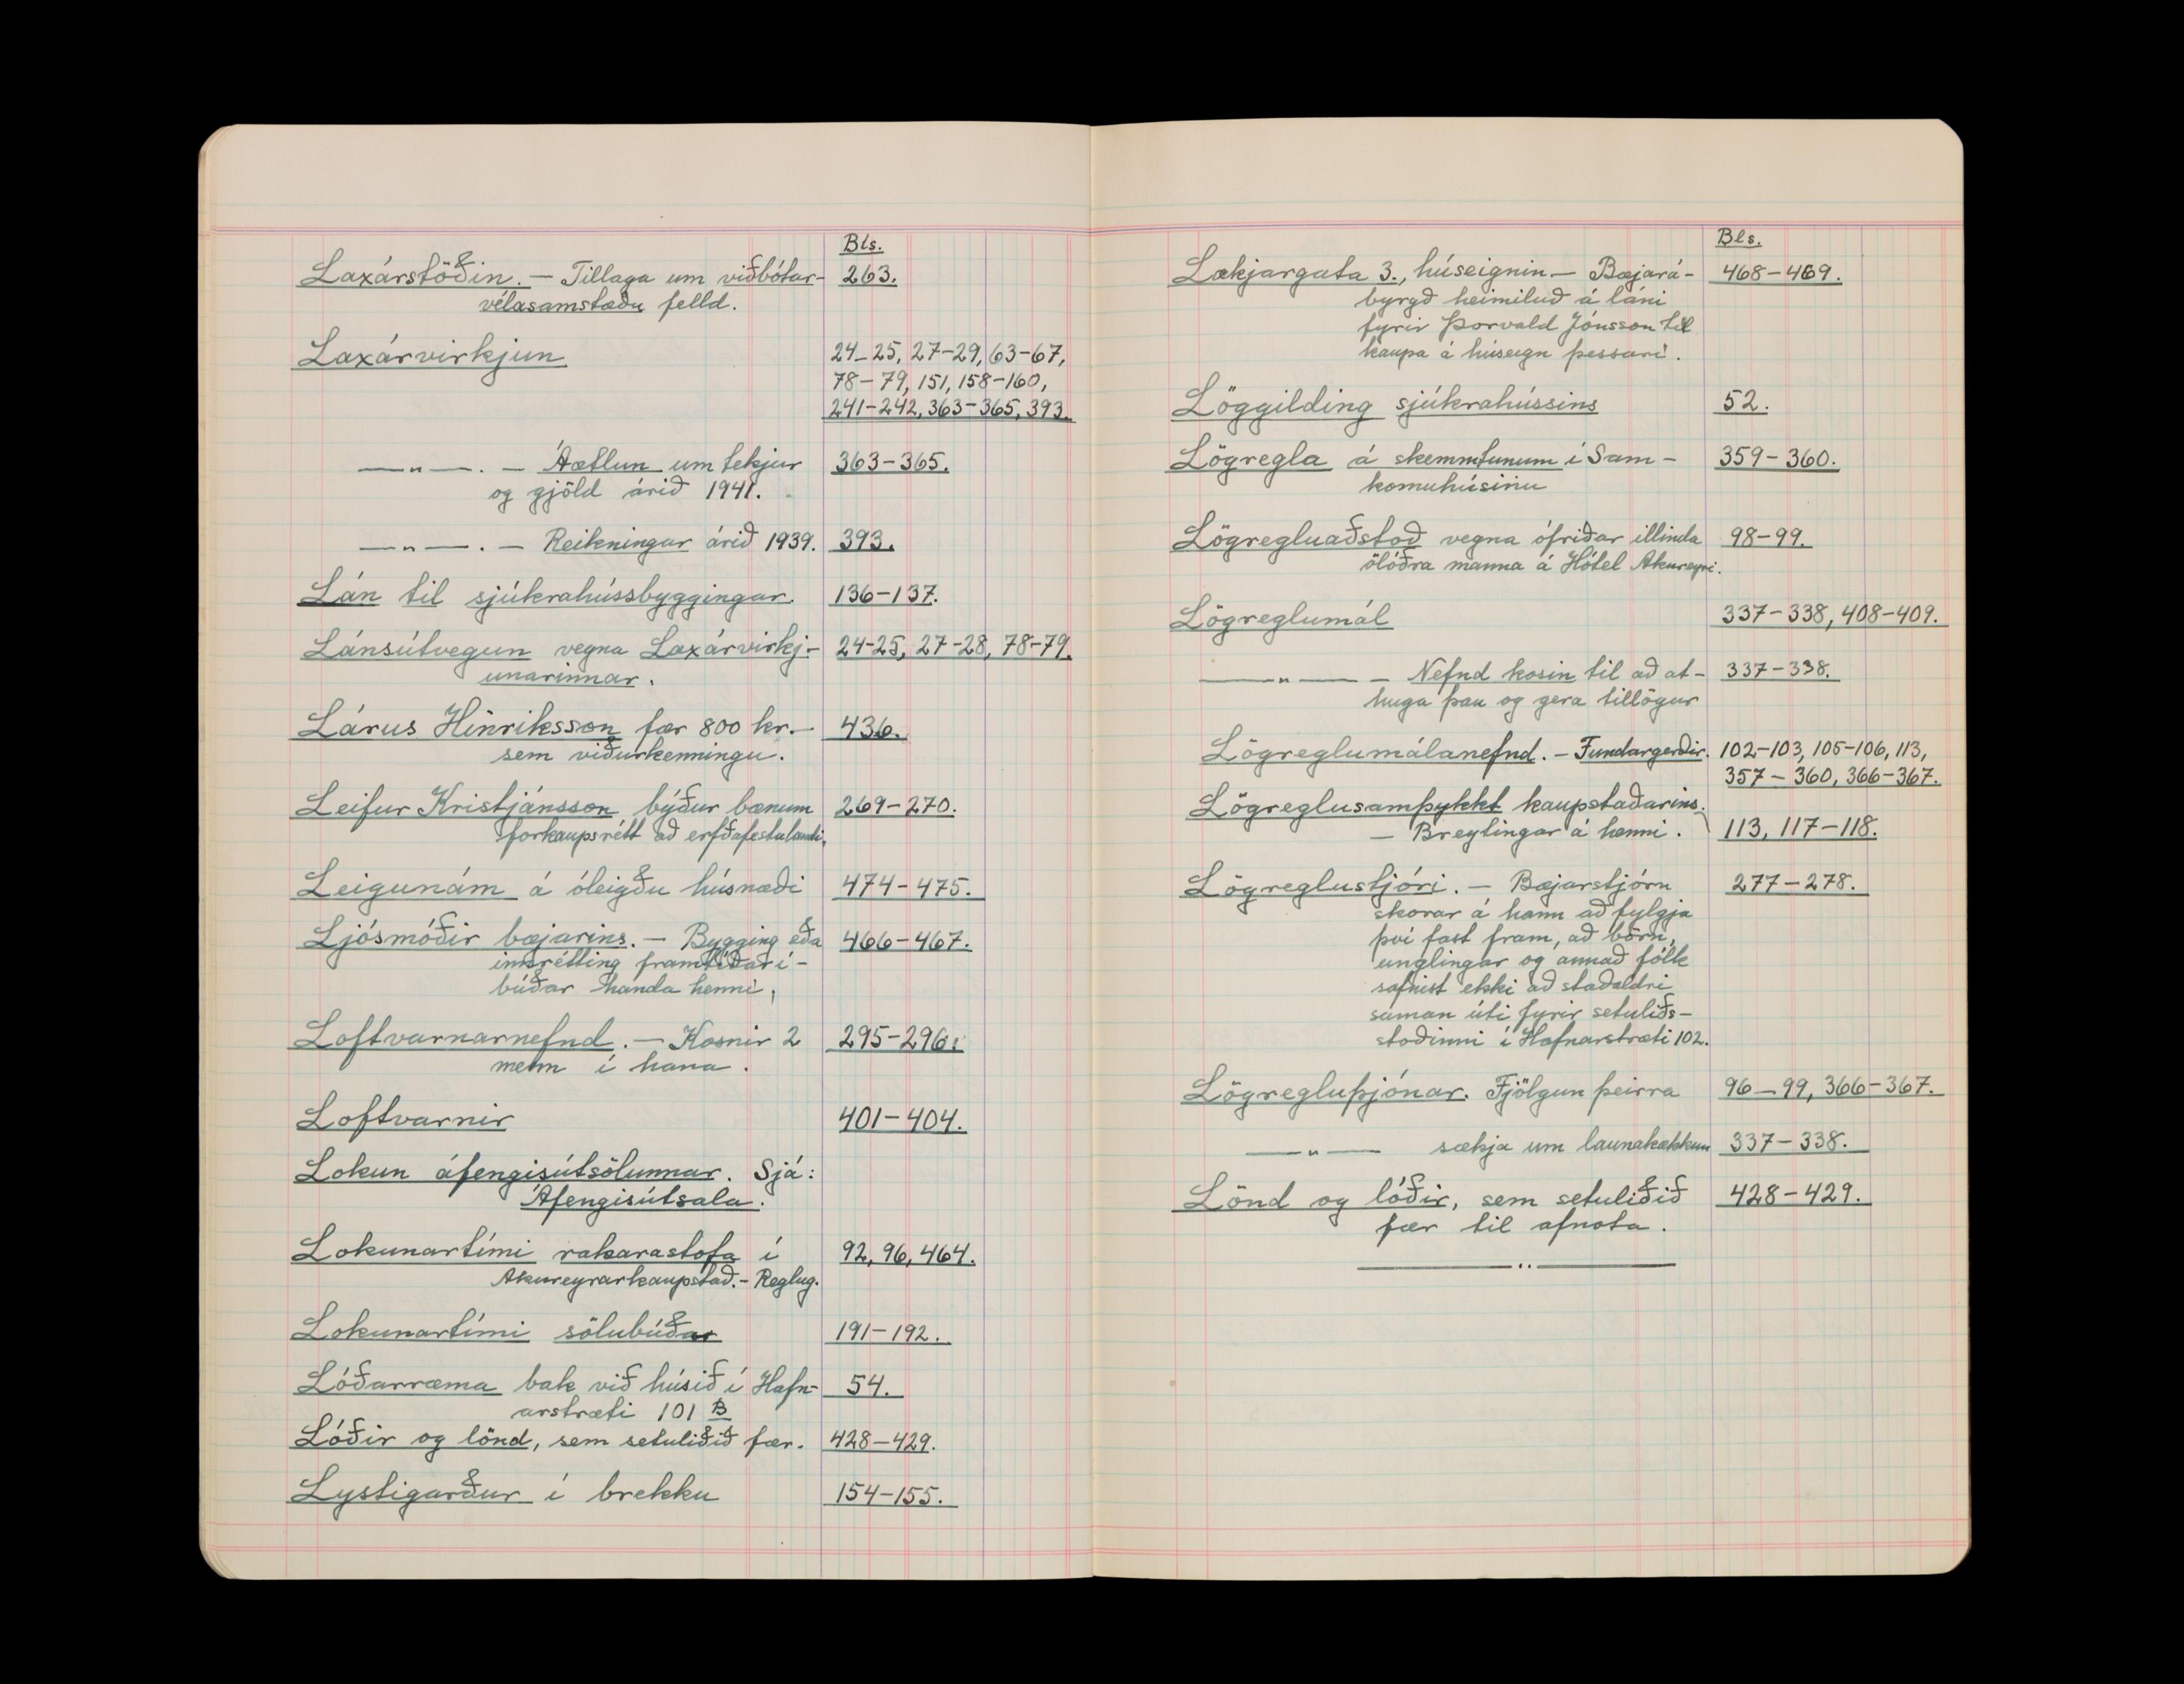 Bls.
Laxárstöðin. – Tillaga um viðbótar- 263.
vélasamstæðu felld.
Laxárvirkjun 24–25, 27–29, 63–67,
78–79, 151, 158–160,
241–242, 363–365, 393.
—„—. – Áætlun um tekjur 363–365.
og gjöld árið 1941.
—„—. – Reikningar árið 1939. 393.
Lán til sjúkrahússbyggingar. 136–137.
Lánsútvegun vegna Laxárvirkj- 24–25, 27–28, 78–79.
unarinnar.
Lárus Hinriksson fær 800 kr. – 436.
sem viðurkenningu.
Leifur Kristjánsson býður bænum 269–270.
forkaupsrétt að erfðafestulandi.
Leigunám á óleigðu húsnæði 474–475.
Ljósmóðir bæjarins. – Bygging eða 466–467.
innrétting framtíðarí-
búðar handa henni.
Loftvarnarnefnd. – Kosnir 2 295–296.
menn í hana.
Loftvarnir 401–404.
Lokun áfengisútsölunnar. Sjá:
Áfengisútsala.
Lokunartími rakarastofa í 92, 96, 464.
Akureyrarkaupstað. – Reglug.
Lokunartími sölubúðar 191–192.
Lóðarræma bak við húsið í Hafn- 54.
arstræti 101 B
Lóðir og lönd, sem setuliðið fær. 428–429.
Lystigarður í brekku 154–155.
Bls.
Lækjargata 3., húseignin – Bæjará- 468–469.
byrgð heimiluð á láni
fyrir Þorvald Jónsson til
kaupa á húseign þessari.
Löggilding sjúkrahússins 52.
Lögregla á skemmtunum í Sam- 359–360.
komuhúsinu
Lögregluaðstoð vegna ófriðar illinda 98–99.
ölóðra manna á Hótel Akureyri.
Lögreglumál 337–338, 408–409.
—„— – Nefnd kosin til að at- 337–338.
huga þau og gera tillögur
Lögreglumálanefnd. – Fundargerðir. 102–103, 105–106, 113,
357–360, 366–367.
Lögreglusamþykkt kaupstaðarins.
– Breytingar á henni. 113, 117–118.
Lögreglustjóri. – Bæjarstjórn 277–278.
skorar á hann að fylgja
því fast fram, að börn,
unglingar og annað fólk
safnist ekki að staðaldri
saman úti fyrir setuliðs-
stöðinni í Hafnarstræti 102.
Lögregluþjónar. Fjölgun þeirra 96–99, 366–367.
—„— sækja um launahækkun 337–338.
Lönd og lóðir, sem setuliðið 428–429.
fær til afnota.